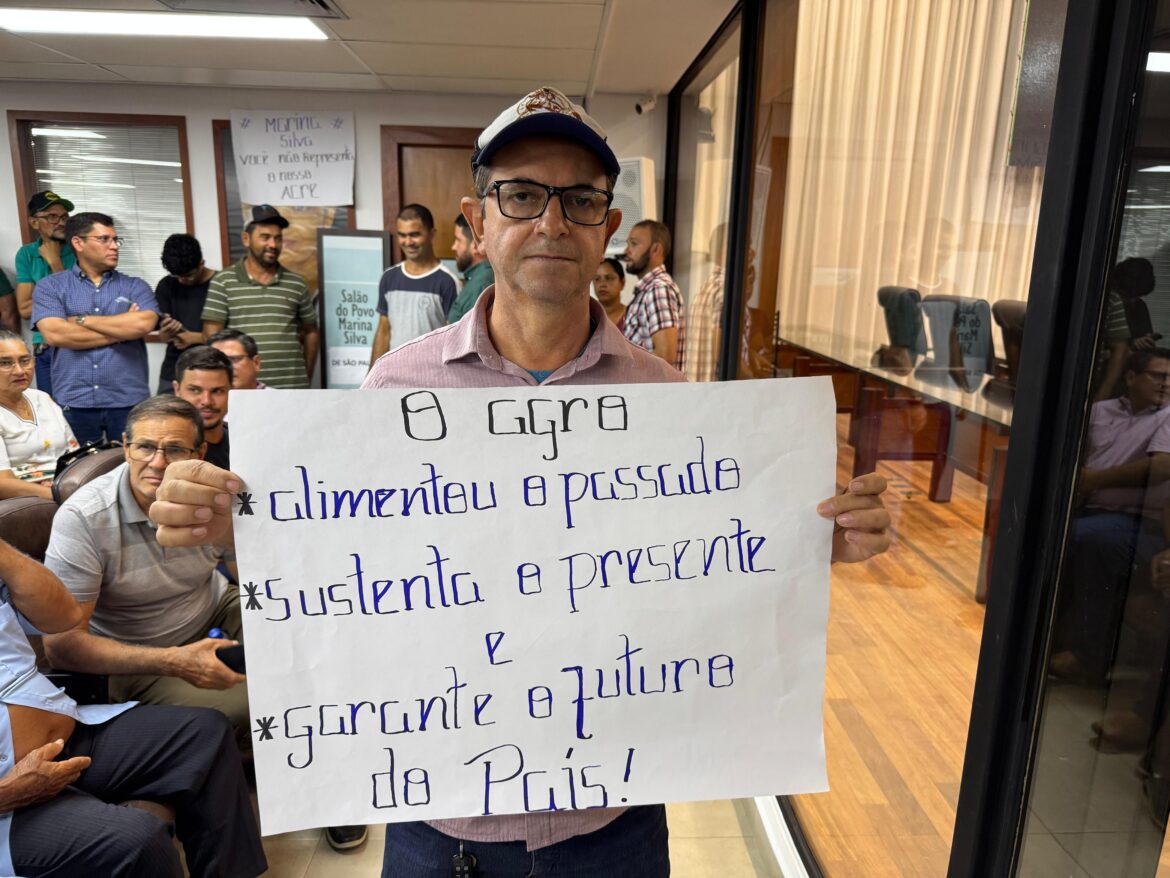 # MARINA #
SILVA
VOCÊ NÃO REPRESENTA
O NOSSO
ACRE
Salão
do Povo
Marina
Silva
DE SÃO PAU
O agro
* alimentou o passado
*sustenta o presente
e
*garante o futuro
do País!